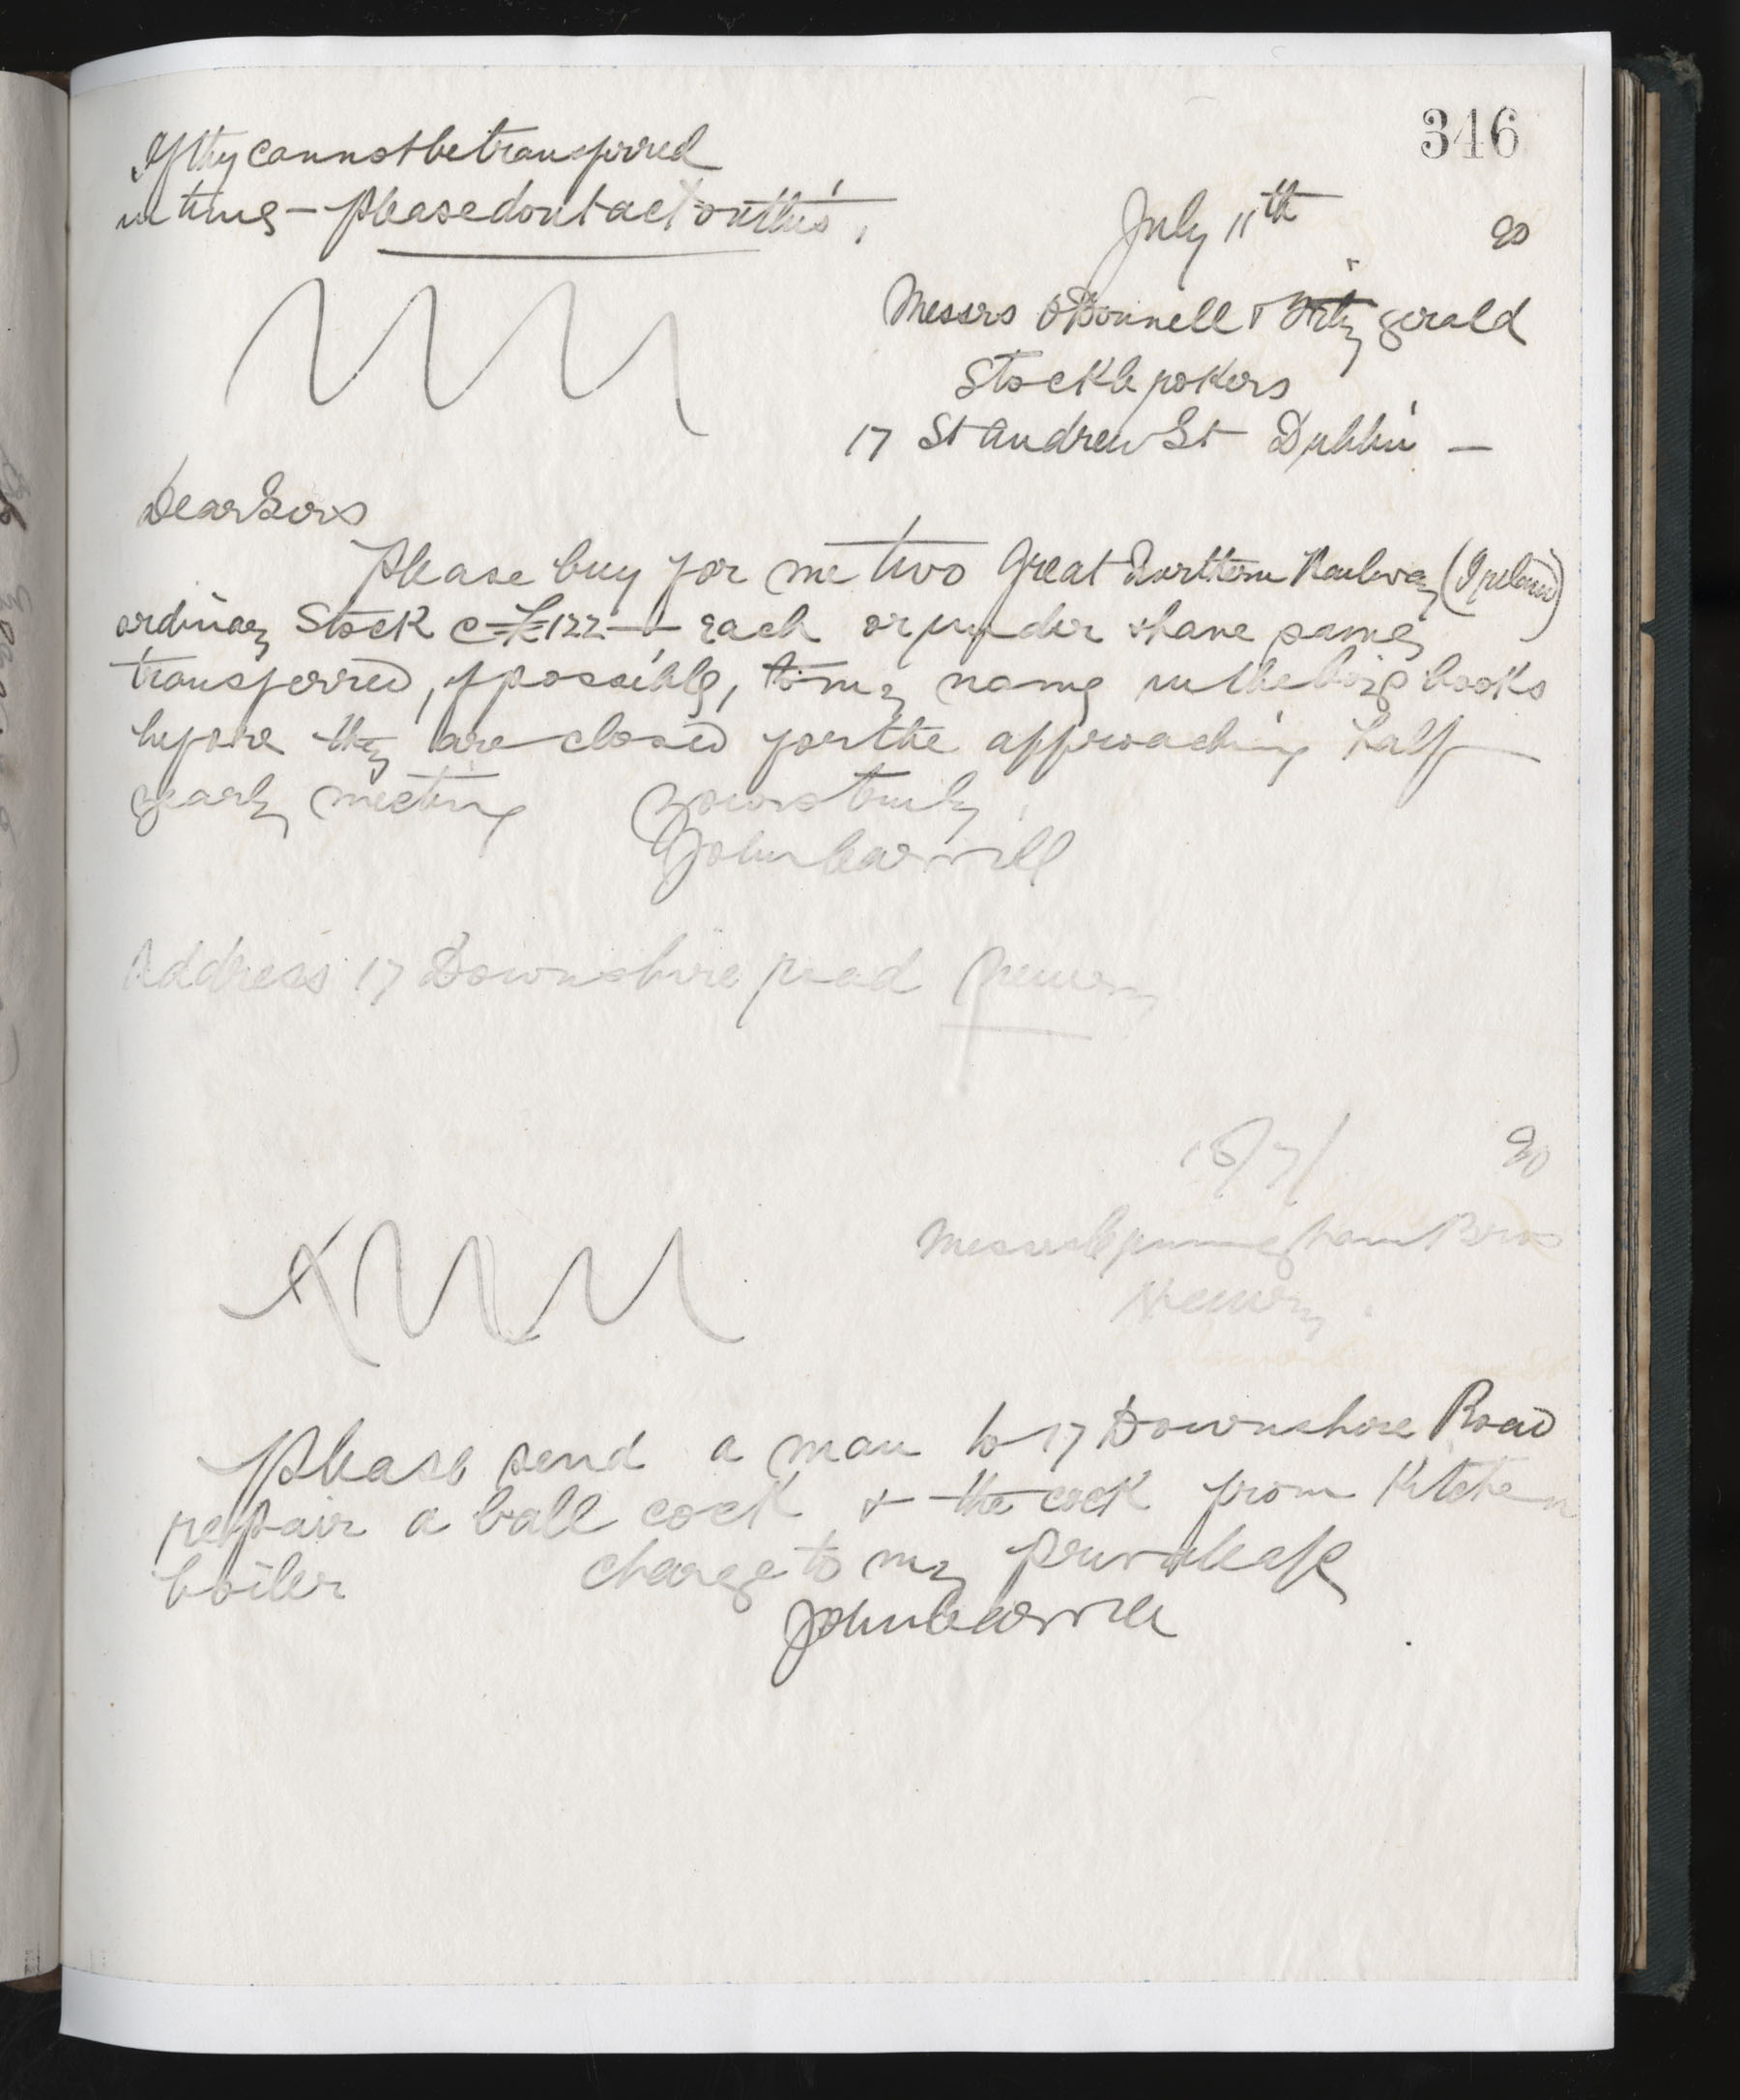 346
If they cannot be transferred
in time – please dont act on this.
July 11th 90
Messrs O'Donnell & Fitzgerald
Stockbrokers
17 St Andrew St Dublin –
Dear Sirs
Please buy for me two Great Northern Railway (Ireland)
ordinary Stock @ £122 – each or under & have same
transferred, if possible, to my name in the books
before they are closed for the approaching half
yearly meeting Yours truly,
John Carvill
Address 17 Downshire road Newry
18/7/ 90
Messrs Cunningham Bros
Newry.
Please send a man to 17 Downshire Road
repair a ball cock & the cock from Kitchen
boiler charge to my private a/c
John Carvill